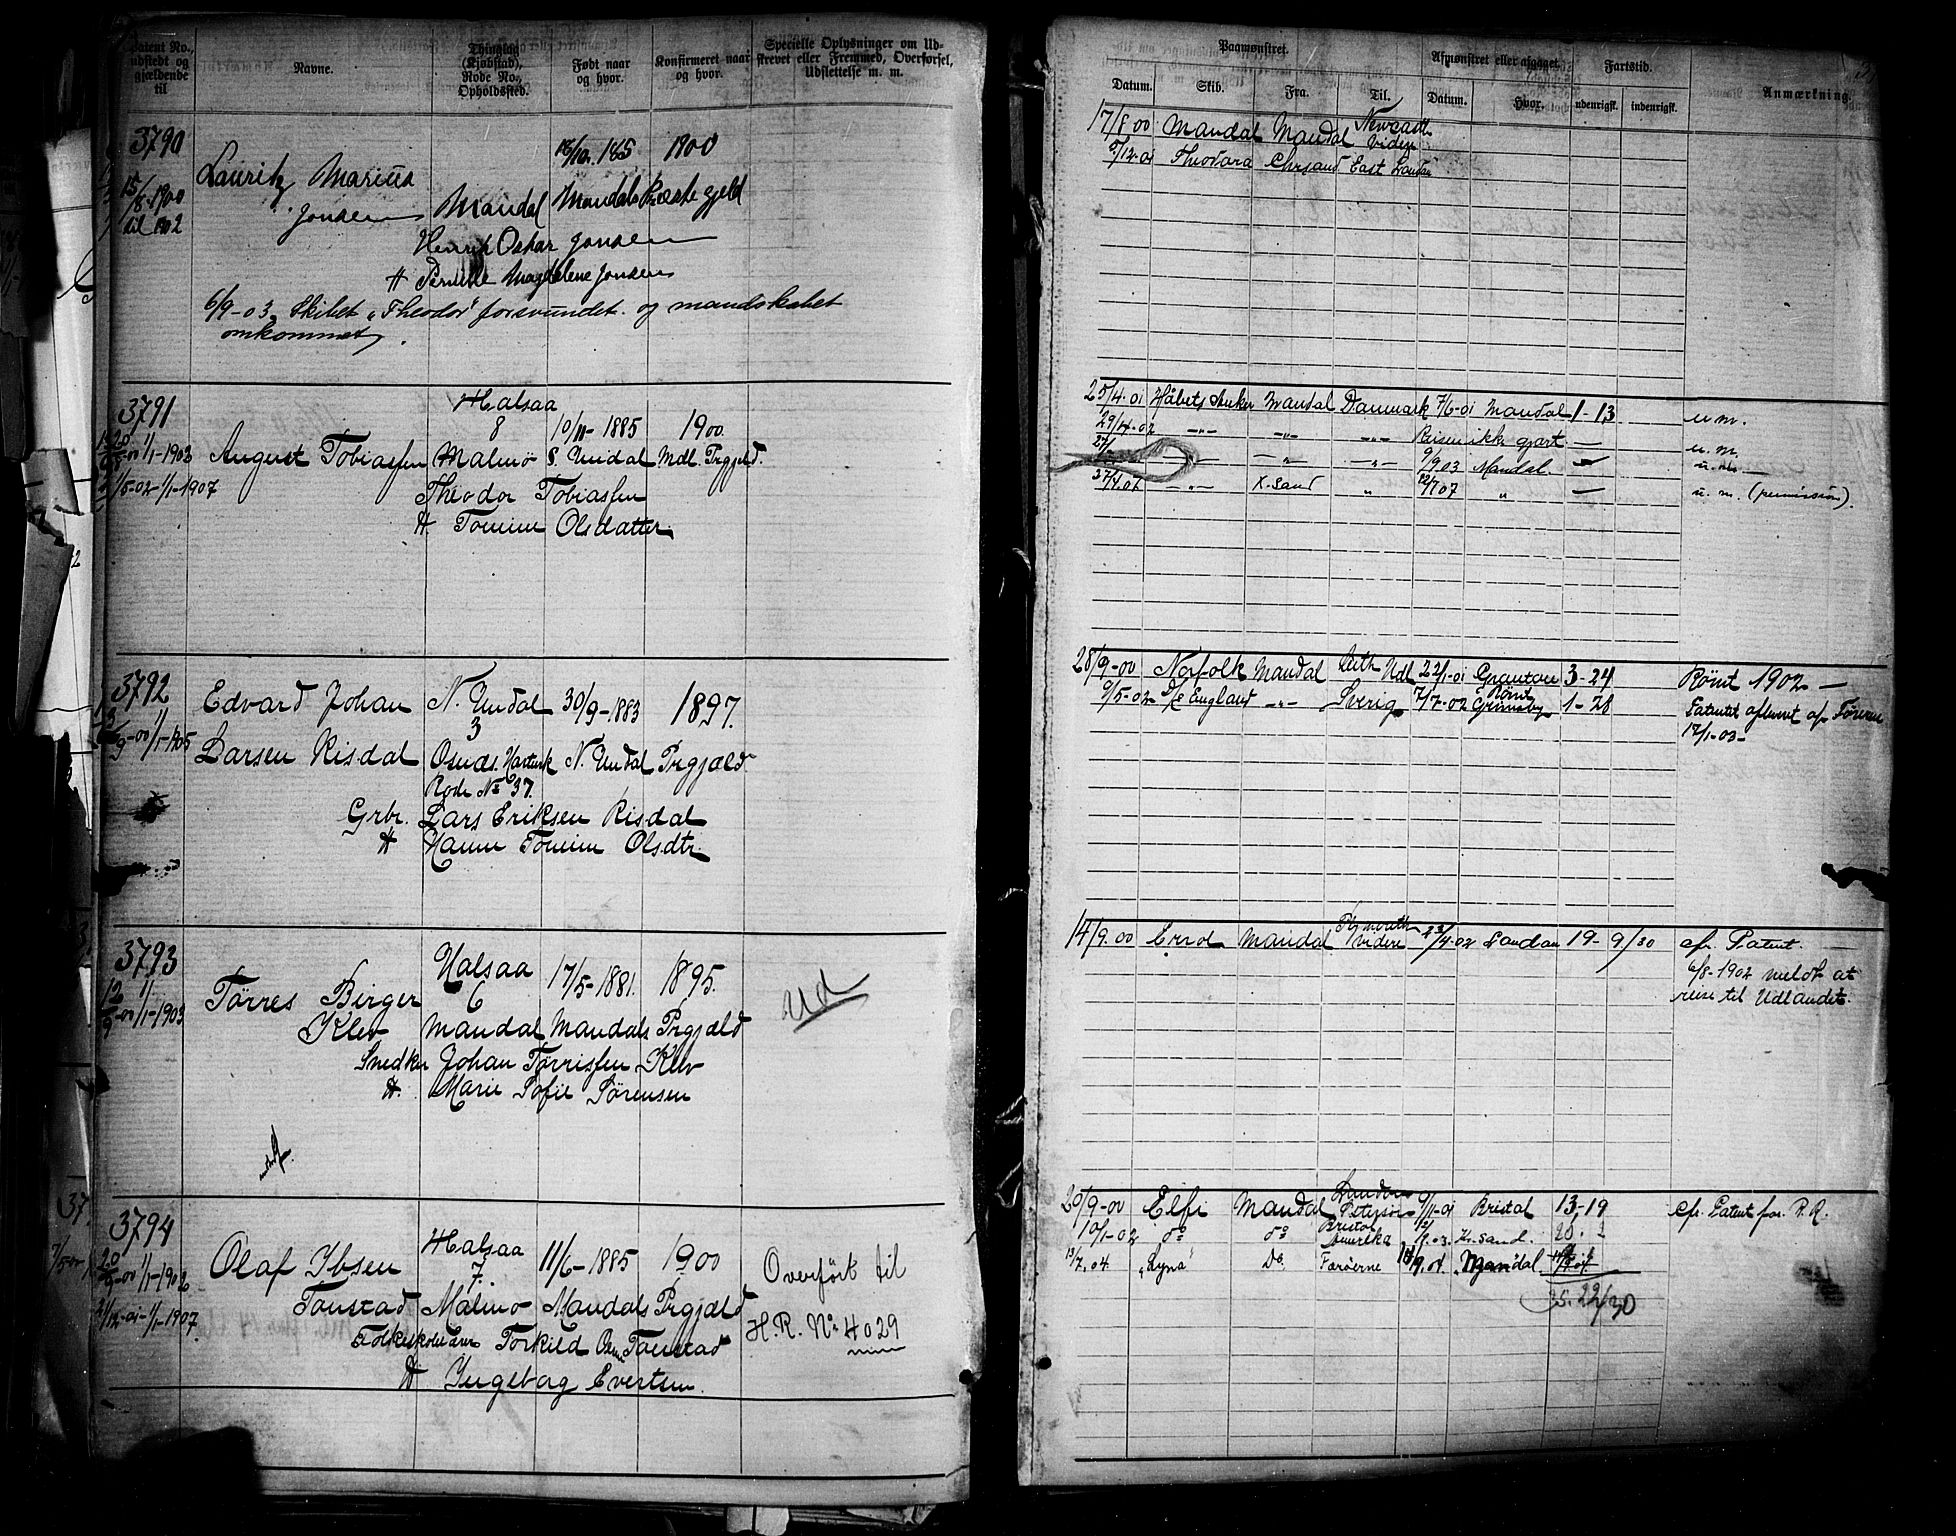 Patent No., udstedt og gjældende til
Navne.
Thinglag (Kjøbstad), Rode No., Opholdssted.
Født naar og hvor.
Konfirmeret naar og hvor.
Specielle Oplysninger om Udstrevet eller Fremmed, Overførsel, Udslettelse m. m.
3790
18/10 185 1900
Lauritz Marius
15/8-1900
til 1902
Jonsen Mandal Mandals Præstegjeld
Henrik Oskar Jonsen
H Pernille Magdelene Jonsen
6/9-03 Skibet "Theodor" forsvundet og mandskabet
omkommet.
3791
Halsaa
8 10/11-1885 1900
1/1-1903 August Tobiassen Malmø S. Undal Mdl. Prgjeld.
1/5-02-1/1-1907
Theodor Tobiassen
H. Tomine Olsdatter
3792
Edvard Johan N. Undal 30/9-1883 1897.
3
1/1-1905
Larsen Risdal N. Undal Prgjæld
Rode No 37.
Grbr. Lars Eriksen Risdal
H Hanne Tomine Olsdtr.
3793
Halsaa 17/5-1881. 1895.
6
12/9-00 1/1-1903 Tørres Birger
Klev Mandal Mandals Prgjæld
Ud
Snedker Johan Tørrissen Klev
H. Marie Sofie Sørensen
3794
Halsaa 11/6-1885 1900
7.
20/9-00 Olaf Ibsen
Overført til
21/12-01-1/1-1907. Tonstad Malmø Mandals Prgjæld
H.R. No 4029
Torkild Tonstad
H Ingeborg Evertsen.
Paamønstret.
Afmønstret eller afgaaet.
Fartstid.
Anmærkning
Datum. Skib. Fra. Til. Datum. Hvor. udenrigsk. indenrigsk.
17/8 00 Mandal Mandal Newcastle viden
/12-01 Theodora Chrsand East London
25/4-01 Håbets Anker Mandal Danmark 7/6-01 Mandal 1-13 u.m.
29/4-02 -"- -"- -"- Reisen ikke gjort — u.m.
27/ -"- -"- 9/9 03 Mandal — u.m.
-"- K.sand " 12/7 07 " — u.m. (permission).
28/9-00 Norfolk Mandal Leith Udl 22/1-01 3-24 Rømt 1902 —
/5-02 D/S England -"- Sverig 7/7-02 Rømt Grimsby 1-28 Patentet afleveret af Føreren
12/1-03-
14/9.00 Errol Mandal Plymouth videre 23/4-02 London 19-9/30 afl. Patent.
6/8-1902 meldt at
reise til Udlandet.
20/9-00 Elfi Mandal 9/11-01 Bristol 13,19 afl. Patent for R.R.
10/1-02 do do Bristol Amerika K.sand.
13/7.04 "Lyna" Do. Færøerne 14/9.04 Mandal
35. 22/30